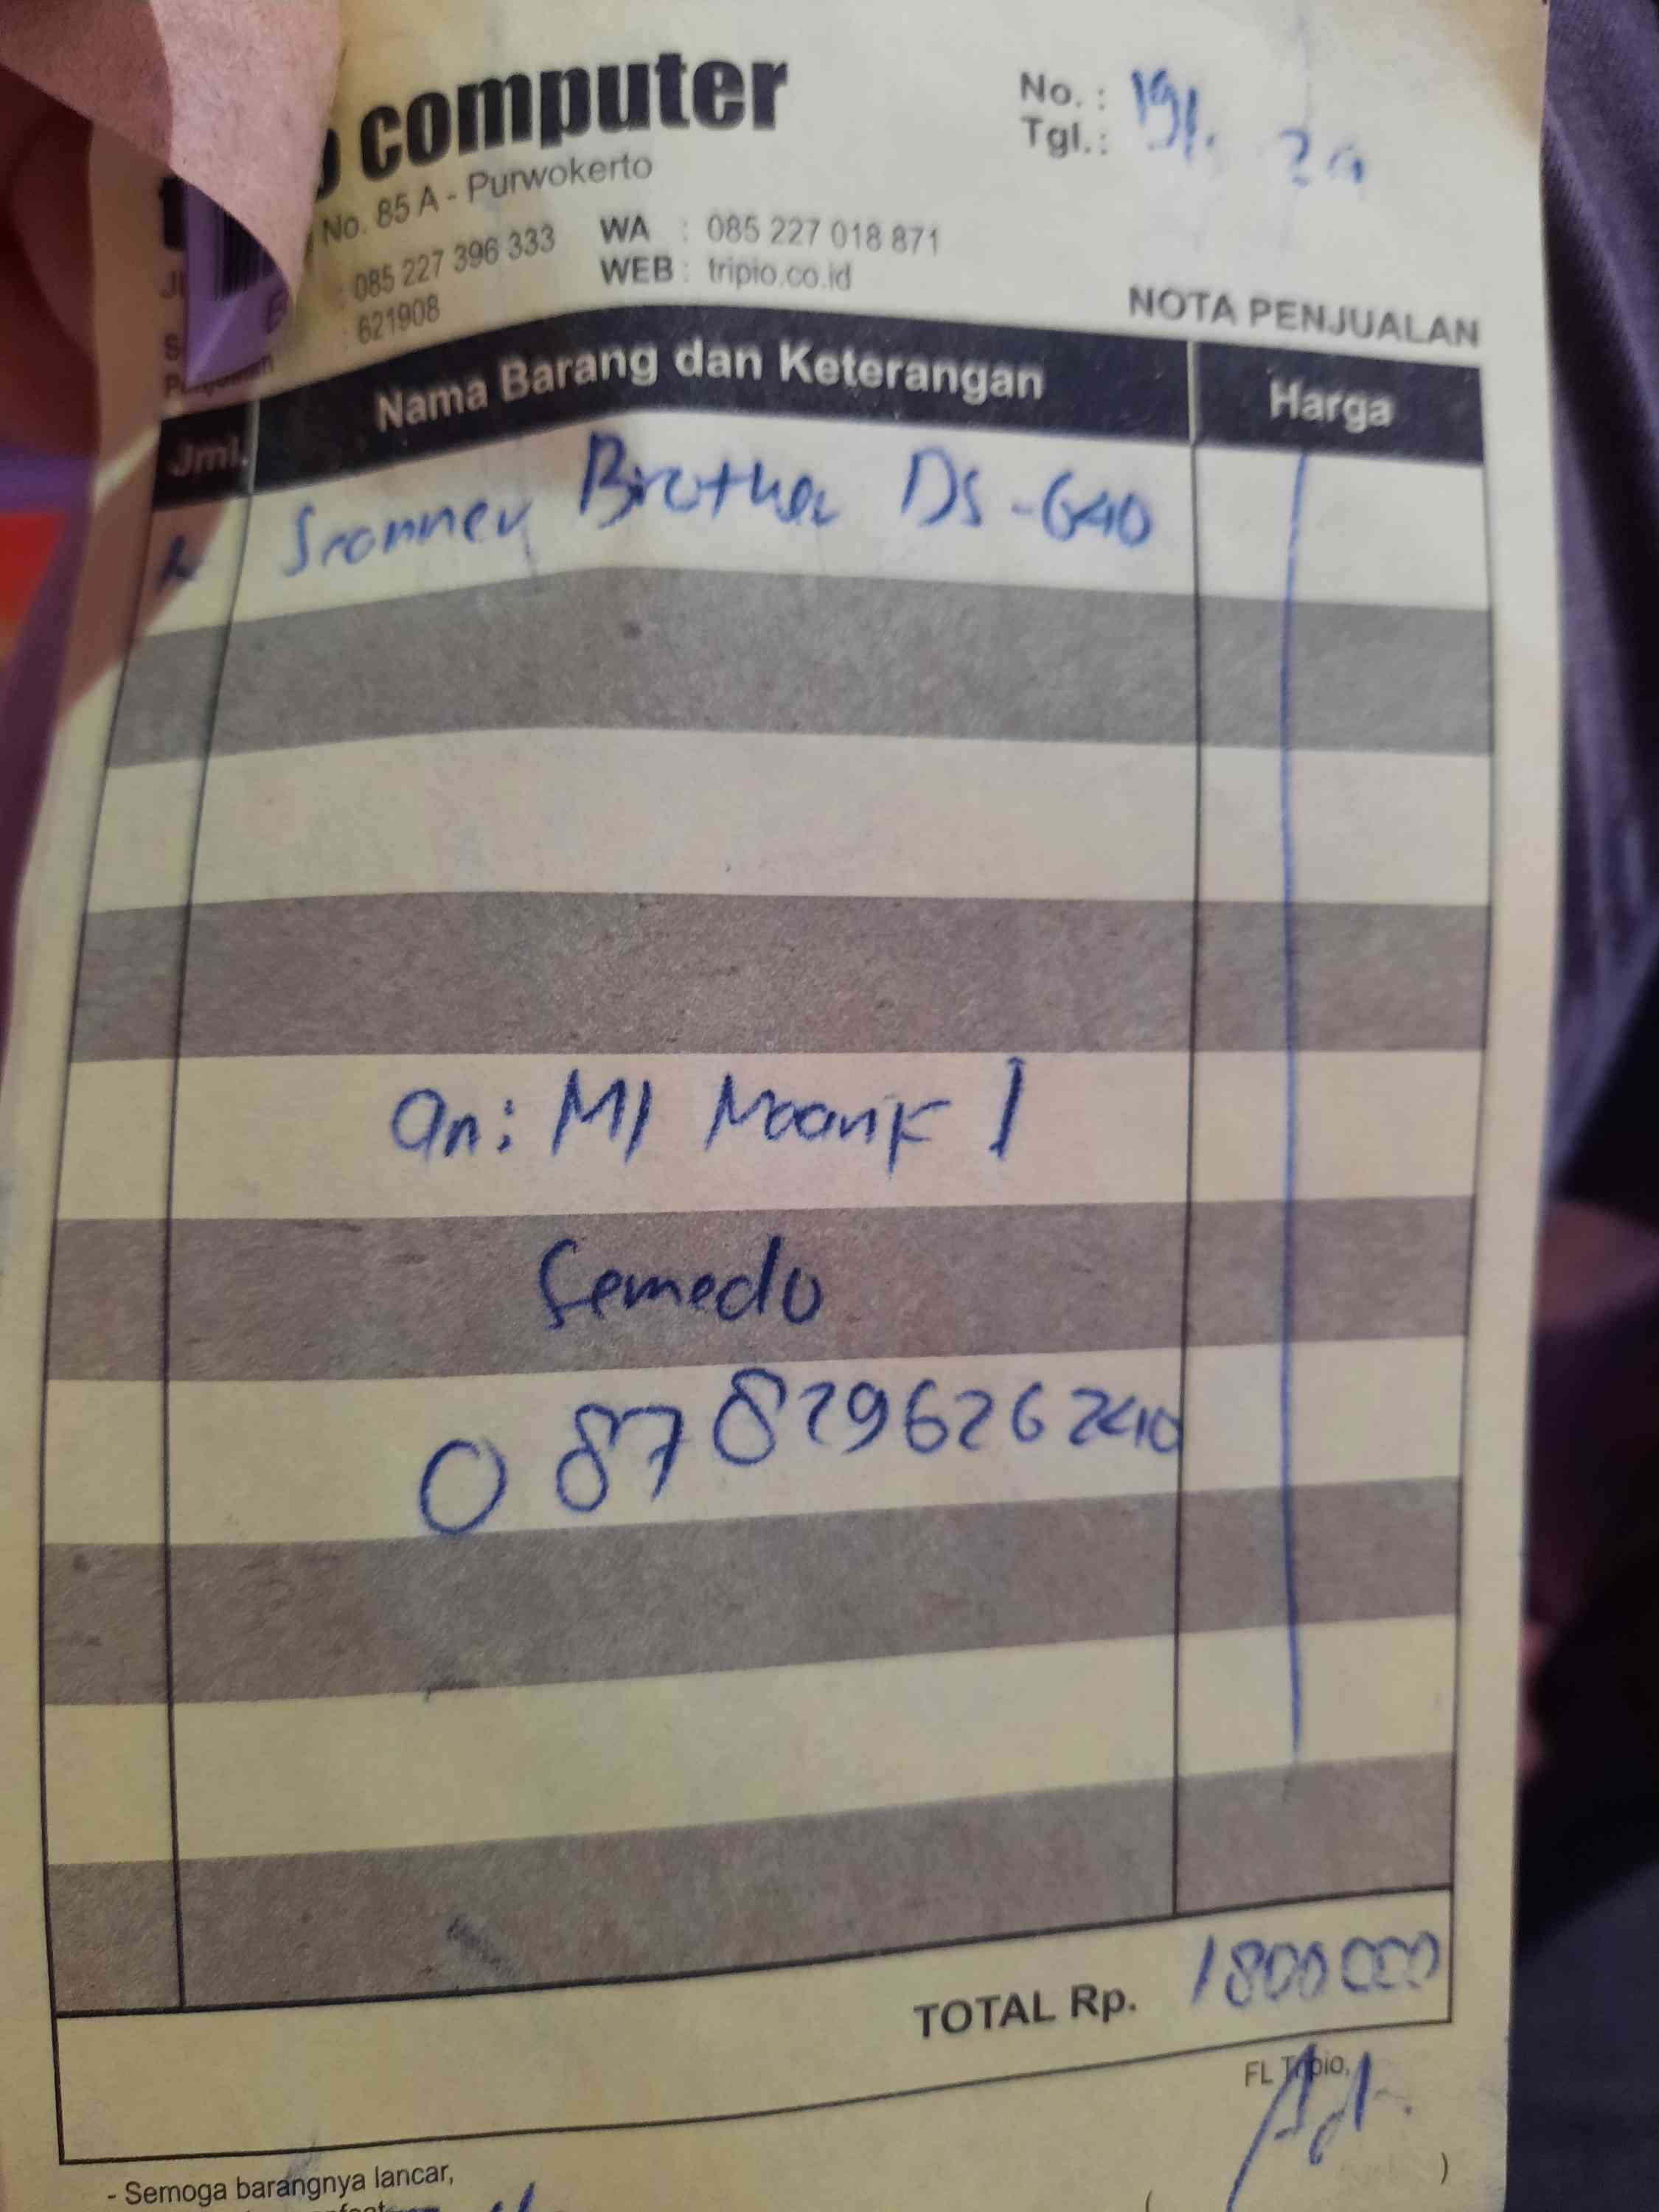 computer
No. 85 A - Purwokerto
085 227 396 333
621908
WA : 085 227 018 871
WEB : tripio.co.id
No. :
Tgl. :
NOTA PENJUALAN
Jml. Nama Barang dan Keterangan Harga
Scanner Brother DS-640
an: MI Maarif 1
Semedo
087829626240
TOTAL Rp. 1800000
FL Tripio,
)
- Semoga barangnya lancar,